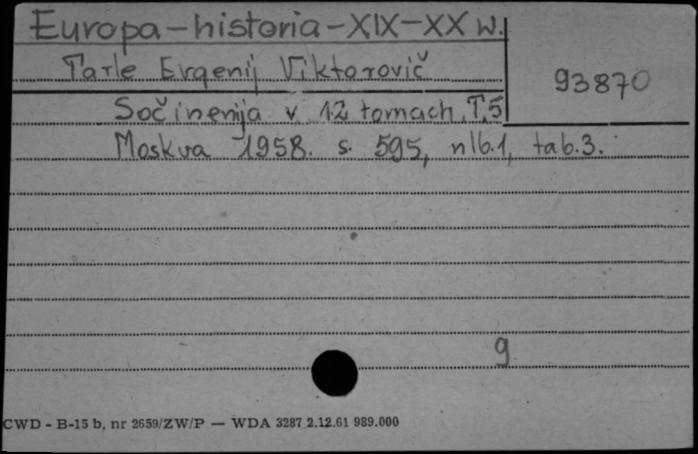 Europa-historia-XIX-XX w.
Tarle Evgenij Viktorovič
93870
Sočinenija v 12 tomach, T.5
Moskva 1958. s. 595, nlb.1, tab.3.
9
CWD - B-15 b, nr 2659/ZW/P — WDA 3287 2.12.61 989.000